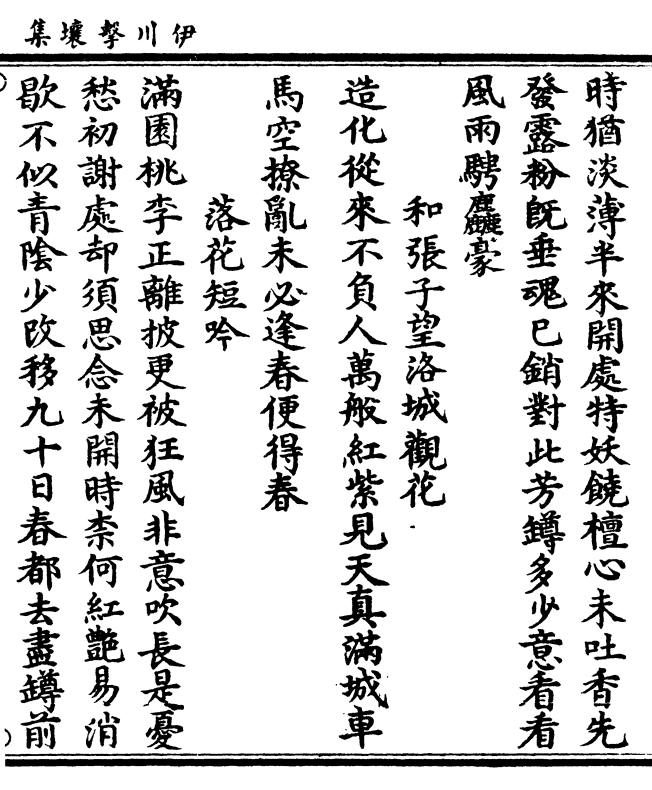 伊川擊壤集
時猶淡薄半來開處特妖饒檀心未吐香先
發露粉旣垂魂已銷對此芳罇多少意看看
風雨騁麤豪
和張子望洛城觀花
造化從來不負人萬般紅紫見天真滿城車
馬空撩亂未必逢春便得春
落花短吟
滿園桃李正離披更被狂風非意吹長是憂
愁初謝處却須思念未開時柰何紅艷易消
歇不似青陰少改移九十日春都去盡罇前